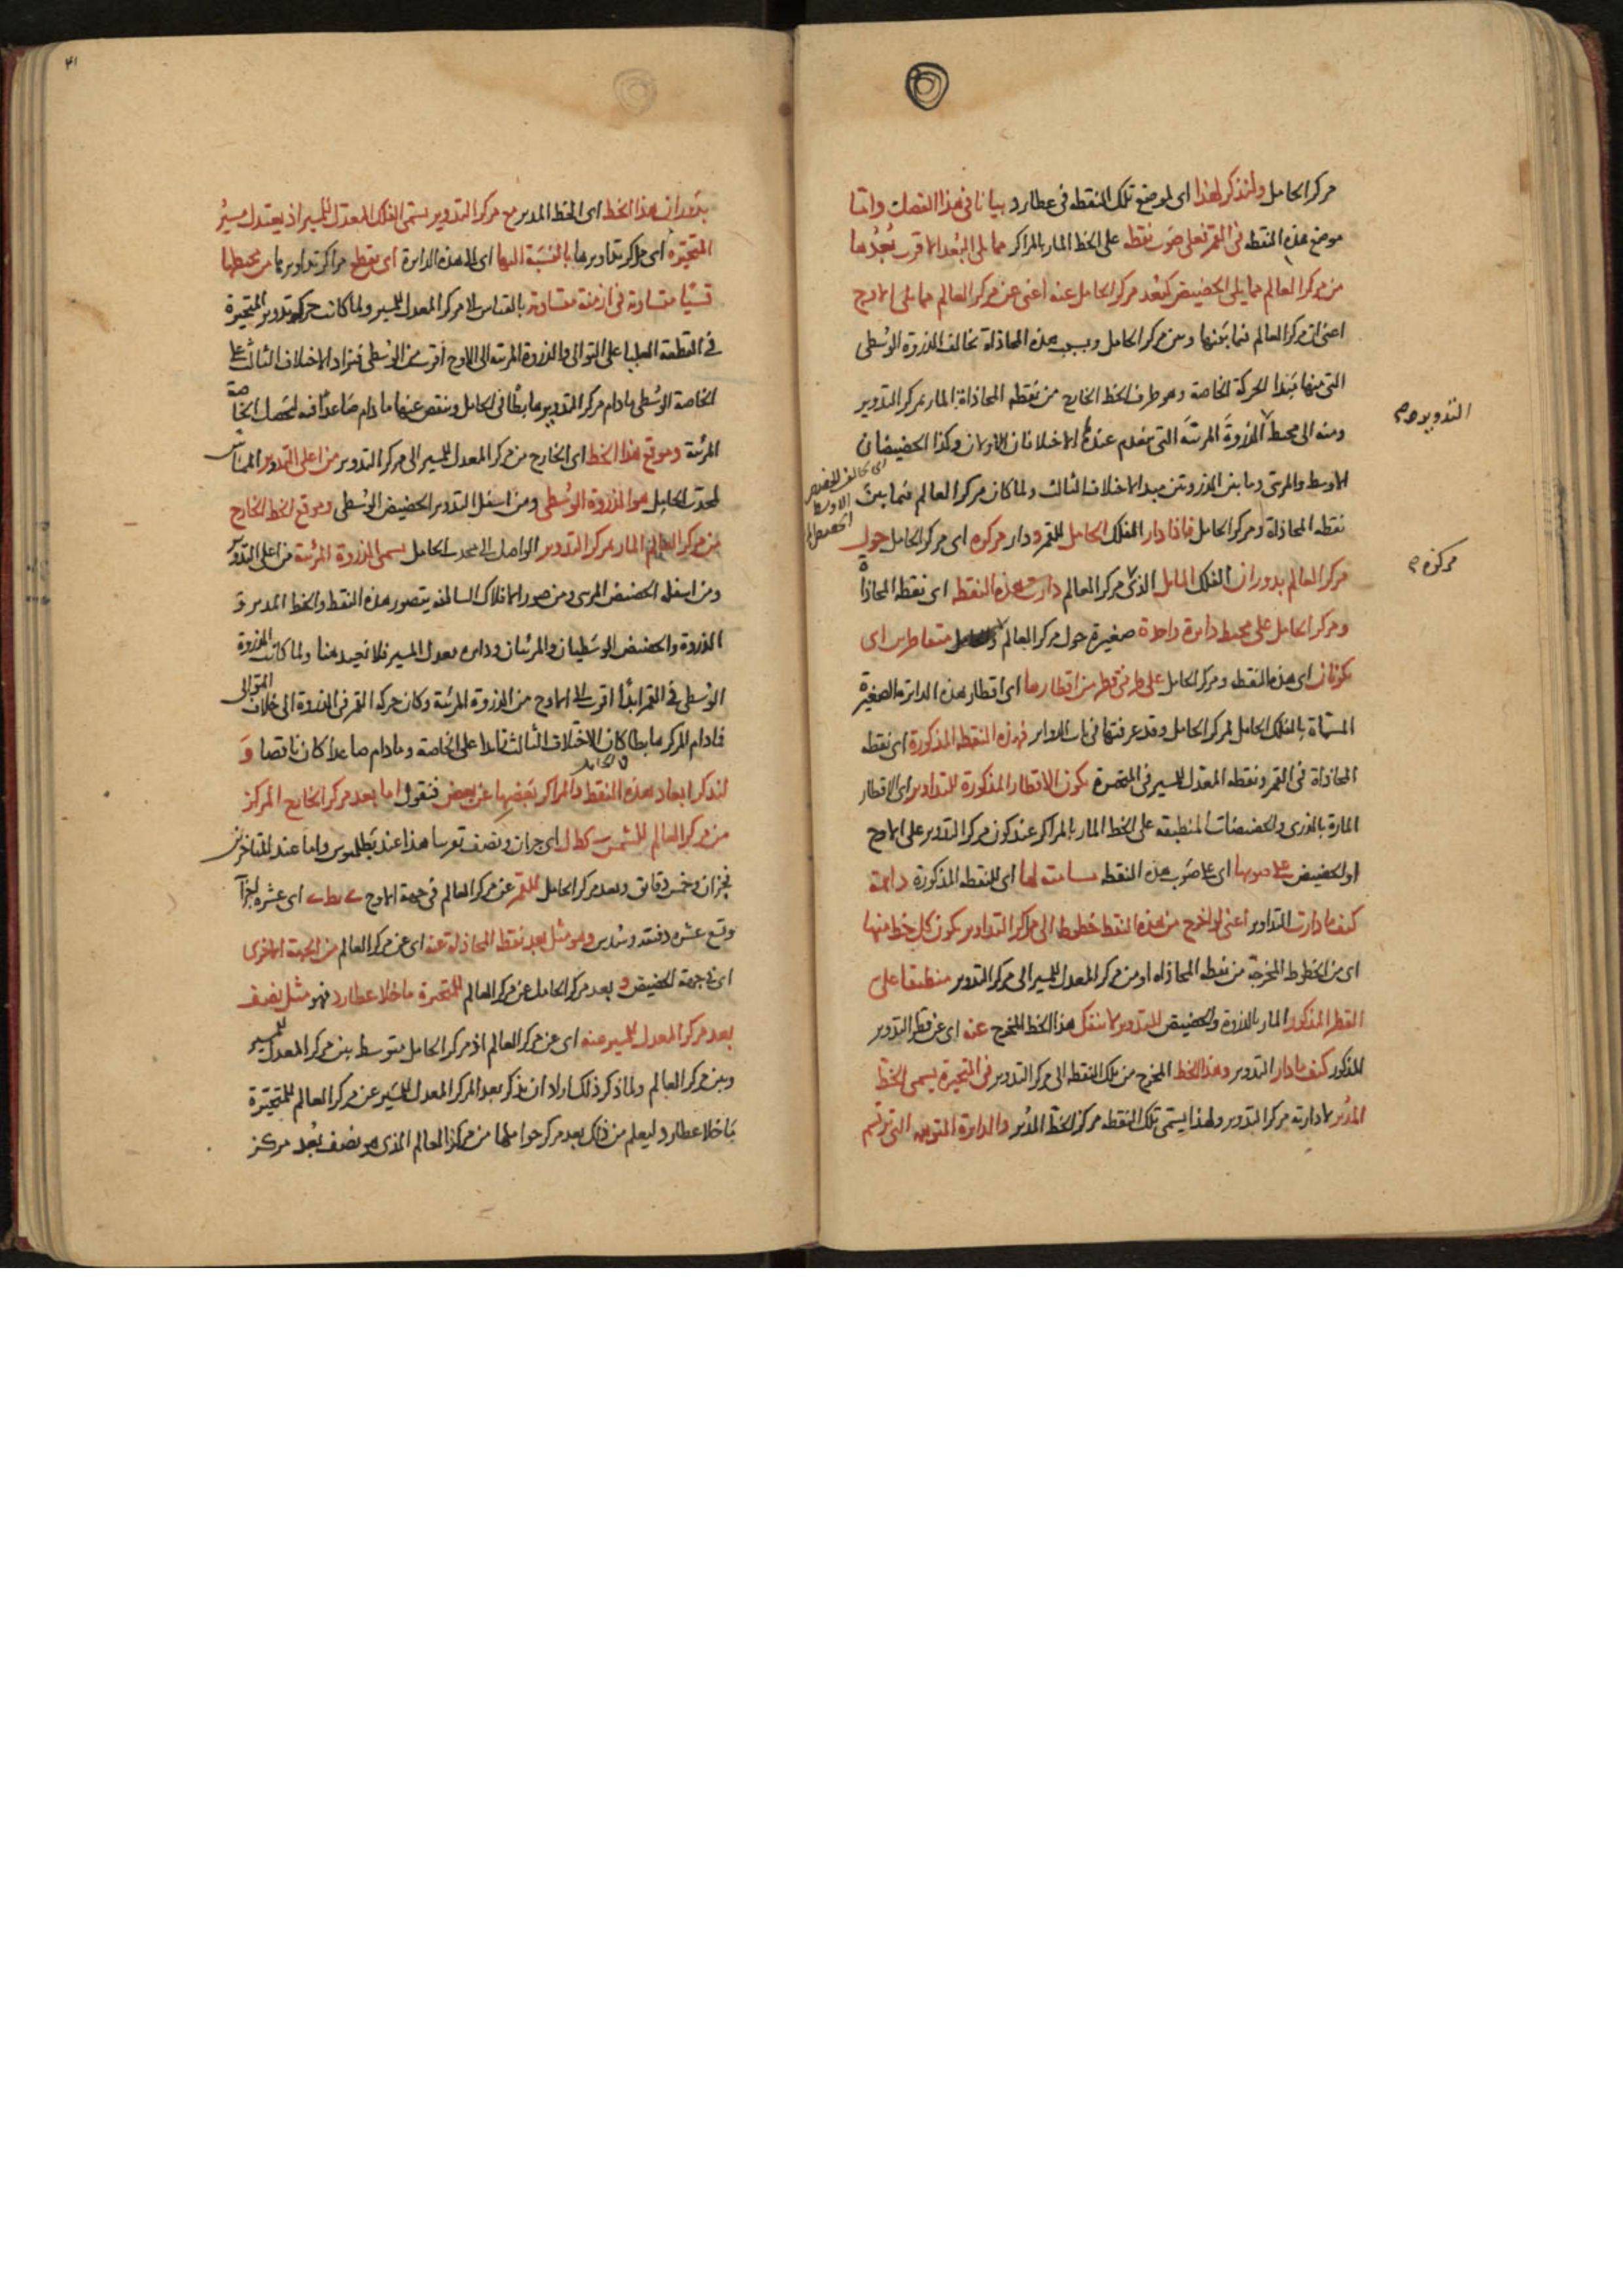 مركز الحامل ولنذكر لهذا اى لموضع تلك النقطة فى عطارد بيانا فى هذا الفصل واما
موضع هذه النقطة فى القمر فعلى صوب نقطة على الخط المار بالمراكز مما يلى البعد الاقرب بعدها
من مركز العالم مما يلى الحضيض كبعد مركز الحامل عنه اعنى عن مركز العالم مما يلى الاوج
اعنى ان مركز العالم فيما بينها وبين مركز الحامل وبسبب هذه المحاذاة تخالف الذروة الوسطى
التى منها مبدا الحركة الخاصة وهو طرف الخط الخارج من نقطة المحاذاة المار بمركز التدوير
التدوير
ومنه الى محيط الذروة المرئية التى ينعدم عندها الاختلافان الاولان وكذا الحضيضان
الاوسط والمرئى وما بين الذروتين مبدا الاختلاف الثالث ولما كان مركز العالم فيما بين
اى يخالف الحضيض الاوسط
نقطة المحاذاة ومركز الحامل فاذا دار الفلك الحامل للقمر ودار مركزه اى مركز الحامل حول
مركزه
مركز العالم بدوران الفلك المايل الذى مركز العالم دارت هذه النقطة اى نقطة المحاذاة
ومركز الحامل على محيط دائرة واحدة صغيرة حول مركز العالم متقاطرين اى
يكونان اى هذه النقطة ومركز الحامل على طرفى قطر من اقطارها اى اقطار هذه الدائرة الصغيرة
المسماة بالفلك الحامل لمركز الحامل وقد عرفتها فى باب الدواير فهذه النقطة المذكورة اى نقطة
المحاذاة فى القمر ونقطة المعدل للمسير فى المتحيرة يكون الاقطار المذكورة للتداوير اى الاقطار
المارة بالذرى والحضيضات المنطبقة على الخط المار بالمراكز عند كون مركز التدوير على الاوج
او الحضيض على صوبها اى على صوب هذه النقطة مسامتة لها اى للنقطة المذكورة دائمة
كيف ما دارت التداوير اعنى لو اخرج من هذه النقط خطوط الى مراكز التداوير يكون كل خط منها
اى من الخطوط المخرجة من نقطة المحاذاة او من مركز المعدل للمسير الى مركز التدوير منطبقا على
القطر المذكور المار بالذروة والحضيض للتدوير لا ينفك هذا الخط المخرج عنه اى عن قطر التدوير
المذكور كيف ما دار التدوير وهذا الخط المخرج من تلك النقطة الى مركز التدوير فى المتحيرة يسمى الخط
المدير لادارته مركز التدوير ولهذا يسمى تلك النقطة مركز الخط المدير والدائرة المتوهمة التى ترتسم
٤١
بدوران هذا الخط اى الخط المدير مع مركز التدوير يسمى الفلك المعدل للمسير اذ يعتدل مسير
المتحيرة اى مراكز تداويرها بالنسبة اليها اى الى هذه الدائرة اى يقطع مراكز تداويرها من محيطها
قسيا متساوية فى ازمنة متساوية بالقياس الى مركز المعدل للمسير ولما كانت حركة تدوير المتحيرة
فى القطعة العليا على التوالى والذروة المرئية الى الاوج اقرب من الوسطى فيزاد الاختلاف الثالث على
الخاصة الوسطى ما دام مركز التدوير هابطا فى الحامل وينقص عنها ما دام صاعدا فيه ليحصل الخاصة
المرئية وموقع هذا الخط اى الخارج من مركز المعدل للمسير الى مركز التدوير من اعلى التدوير المماس
لمحدب الحامل هو الذروة الوسطى ومن اسفل التدوير الحضيض الوسطى وموقع الخط الخارج
من مركز العالم المار بمركز التدوير الواصل الى محدب الحامل يسمى الذروة المرئية من اعلى التدوير
ومن اسفله الحضيض المرئى ومن صور الافلاك السالفة يتصور هذه النقط والخط المدير و
الذروة والحضيض الوسطيان والمرئيان ودائرة معدل المسير فلا نعيد هنا ولما كانت الذروة
الوسطى فى القمر ابدا اقرب الى الاوج من الذروة المرئية وكان حركة القمر فى الذروة الى خلاف التوالى
فما دام المركز هابطا كان الاختلاف الثالث زائدا على الخاصة وما دام صاعدا كان ناقصا و
لنذكر ابعاد هذه النقط والمراكز بعضها عن بعض فنقول اما بعد مركز الخارج المركز
من مركز العالم للشمس ب كط ل اى جزءان ونصف تقريبا هذا عند بطلميوس واما عند المتاخرين
فجزءان وخمس دقايق وبعد مركز الحامل للقمر عن مركز العالم فى جهة الاوج ى يط ى اى عشرة اجزآ
وتسع عشرة دقيقة وسدس وهو مثل بعد نقطة المحاذاة عنه اى عن مركز العالم من الجهة الاخرى
اى فى جهة الحضيض و بعد مركز الحامل عن مركز العالم للمتحيرة ما خلا عطارد فهو مثل نصف
بعد مركز المعدل للمسير عنه اى عن مركز العالم اذ مركز الحامل متوسط بين مركز المعدل للمسير
وبين مركز العالم ولما ذكر ذلك اراد ان يذكر بعد المركز المعدل للمسير عن مركز العالم للمتحيرة
ما خلا عطارد ليعلم من ذلك بعد مركز حواملها من مركز العالم الذى هو نصف بعد مركز